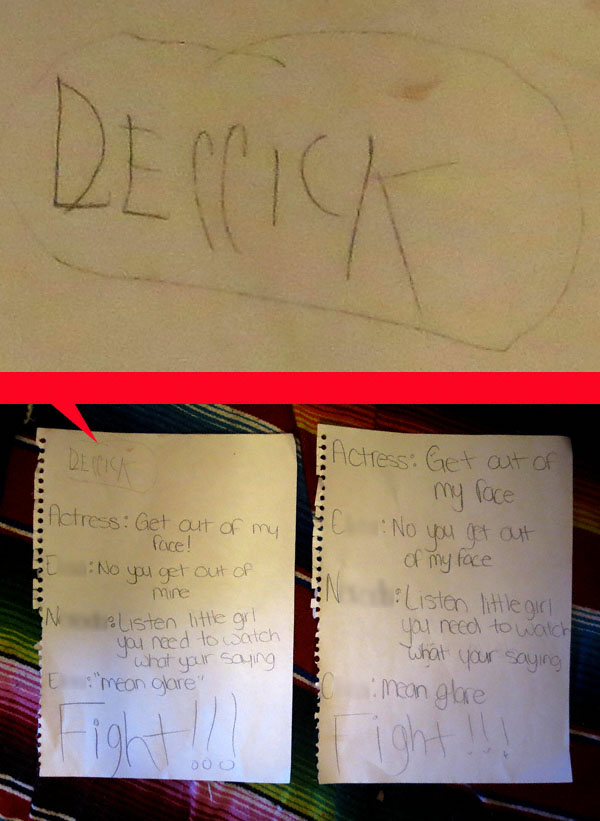 DERRICK
DERRICK
Actress: Get out of my
face!
E :No you get out of
mine
N :Listen little girl
you need to watch
what your saying
E :"mean glare"
Fight!!!
Actress: Get out of
my face
C :No you get out
of my face
N :Listen little girl
you need to watch
what your saying
C :mean glare
Fight!!!